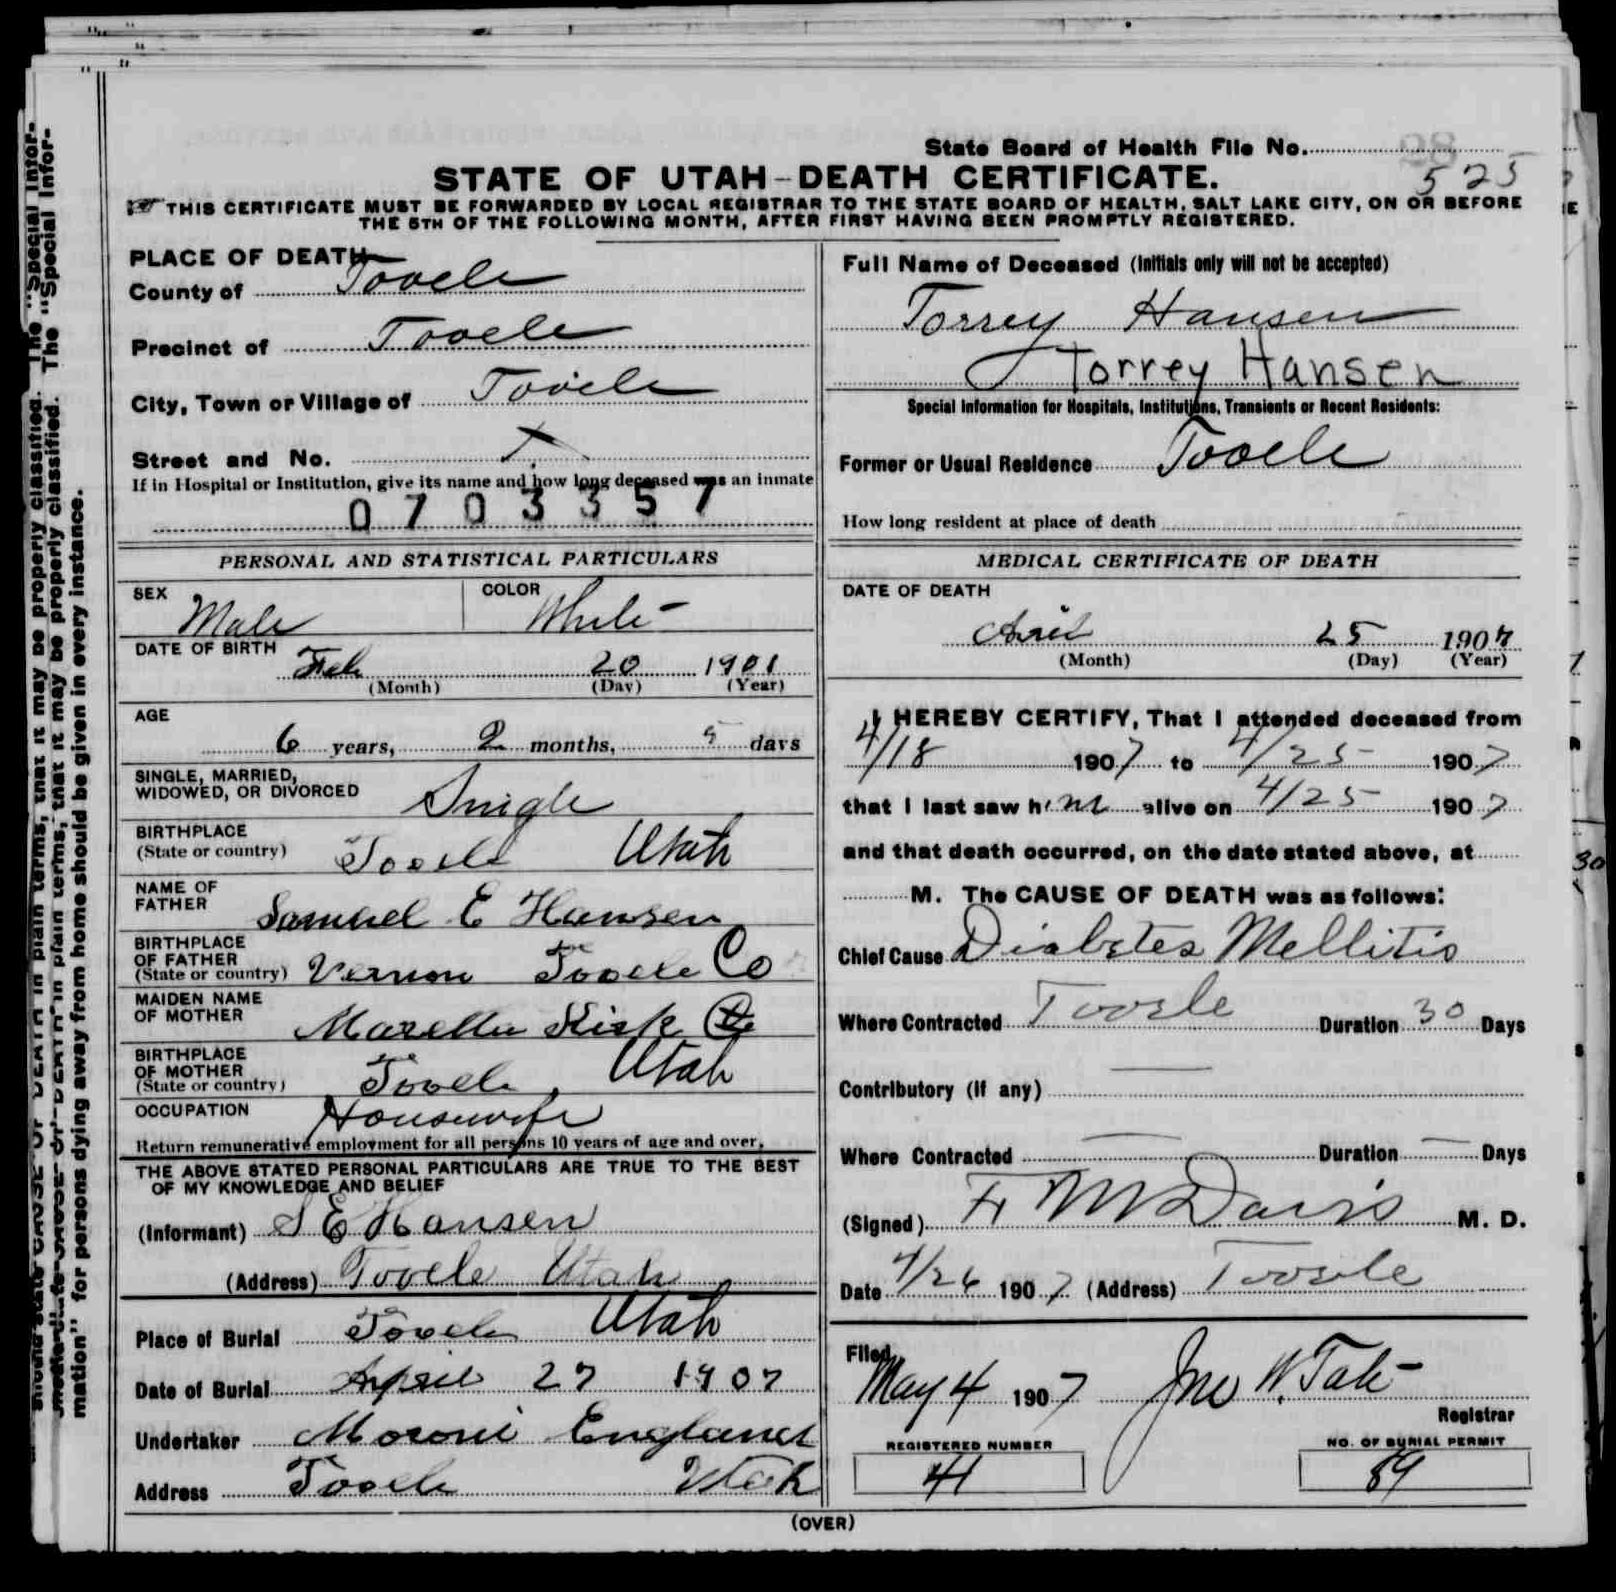 State Board of Health File No.
28
525
STATE OF UTAH-DEATH CERTIFICATE.
THIS CERTIFICATE MUST BE FORWARDED BY LOCAL REGISTRAR TO THE STATE BOARD OF HEALTH, SALT LAKE CITY, ON OR BEFORE
THE 5TH OF THE FOLLOWING MONTH, AFTER FIRST HAVING BEEN PROMPTLY REGISTERED.
PLACE OF DEATH
County of Tooele
Precinct of Tooele
City, Town or Village of Tooele
Street and No. X
If in Hospital or Institution, give its name and how long deceased was an inmate
0703357
PERSONAL AND STATISTICAL PARTICULARS
SEX Male COLOR White
DATE OF BIRTH
Feb 20 1901
(Month) (Day) (Year)
AGE
6 years, 2 months, 5 days
SINGLE, MARRIED,
WIDOWED, OR DIVORCED Single
BIRTHPLACE
(State or country) Tooele Utah
NAME OF
FATHER Samuel E Hansen
BIRTHPLACE
OF FATHER
(State or country) Vernon Tooele Co
MAIDEN NAME
OF MOTHER Kisk
BIRTHPLACE
OF MOTHER
(State or country) Tooele, Utah
OCCUPATION Housewife
Return remunerative employment for all persons 10 years of age and over.
THE ABOVE STATED PERSONAL PARTICULARS ARE TRUE TO THE BEST
OF MY KNOWLEDGE AND BELIEF
(Informant) S E Hansen
(Address) Tooele Utah
Place of Burial Tooele Utah
Date of Burial April 27 1907
Undertaker Moroni England
Address Tooele Utah
Full Name of Deceased (Initials only will not be accepted)
Torrey Hansen
Torrey Hansen
Special Information for Hospitals, Institutions, Transients or Recent Residents:
Former or Usual Residence Tooele
How long resident at place of death
MEDICAL CERTIFICATE OF DEATH
DATE OF DEATH
April 25 1907
(Month) (Day) (Year)
I HEREBY CERTIFY, That I attended deceased from
4/18 1907 to 4/25 1907
that I last saw him alive on 4/25 1907
and that death occurred, on the date stated above, at
M. The CAUSE OF DEATH was as follows:
Chief Cause Diabetes Mellitis
Where Contracted Tooele Duration 30 Days
Contributory (if any) —
Where Contracted — Duration — Days
(Signed) F M Davis M. D.
Date 4/26 1907 (Address) Tooele
Filed
May 4 1907 Jno W. Tate
Registrar
REGISTERED NUMBER
41
NO. OF BURIAL PERMIT
89
(OVER)
in plain terms, that it may be properly classified. The "Special Infor-
mation" for persons dying away from home should be given in every instance.
30